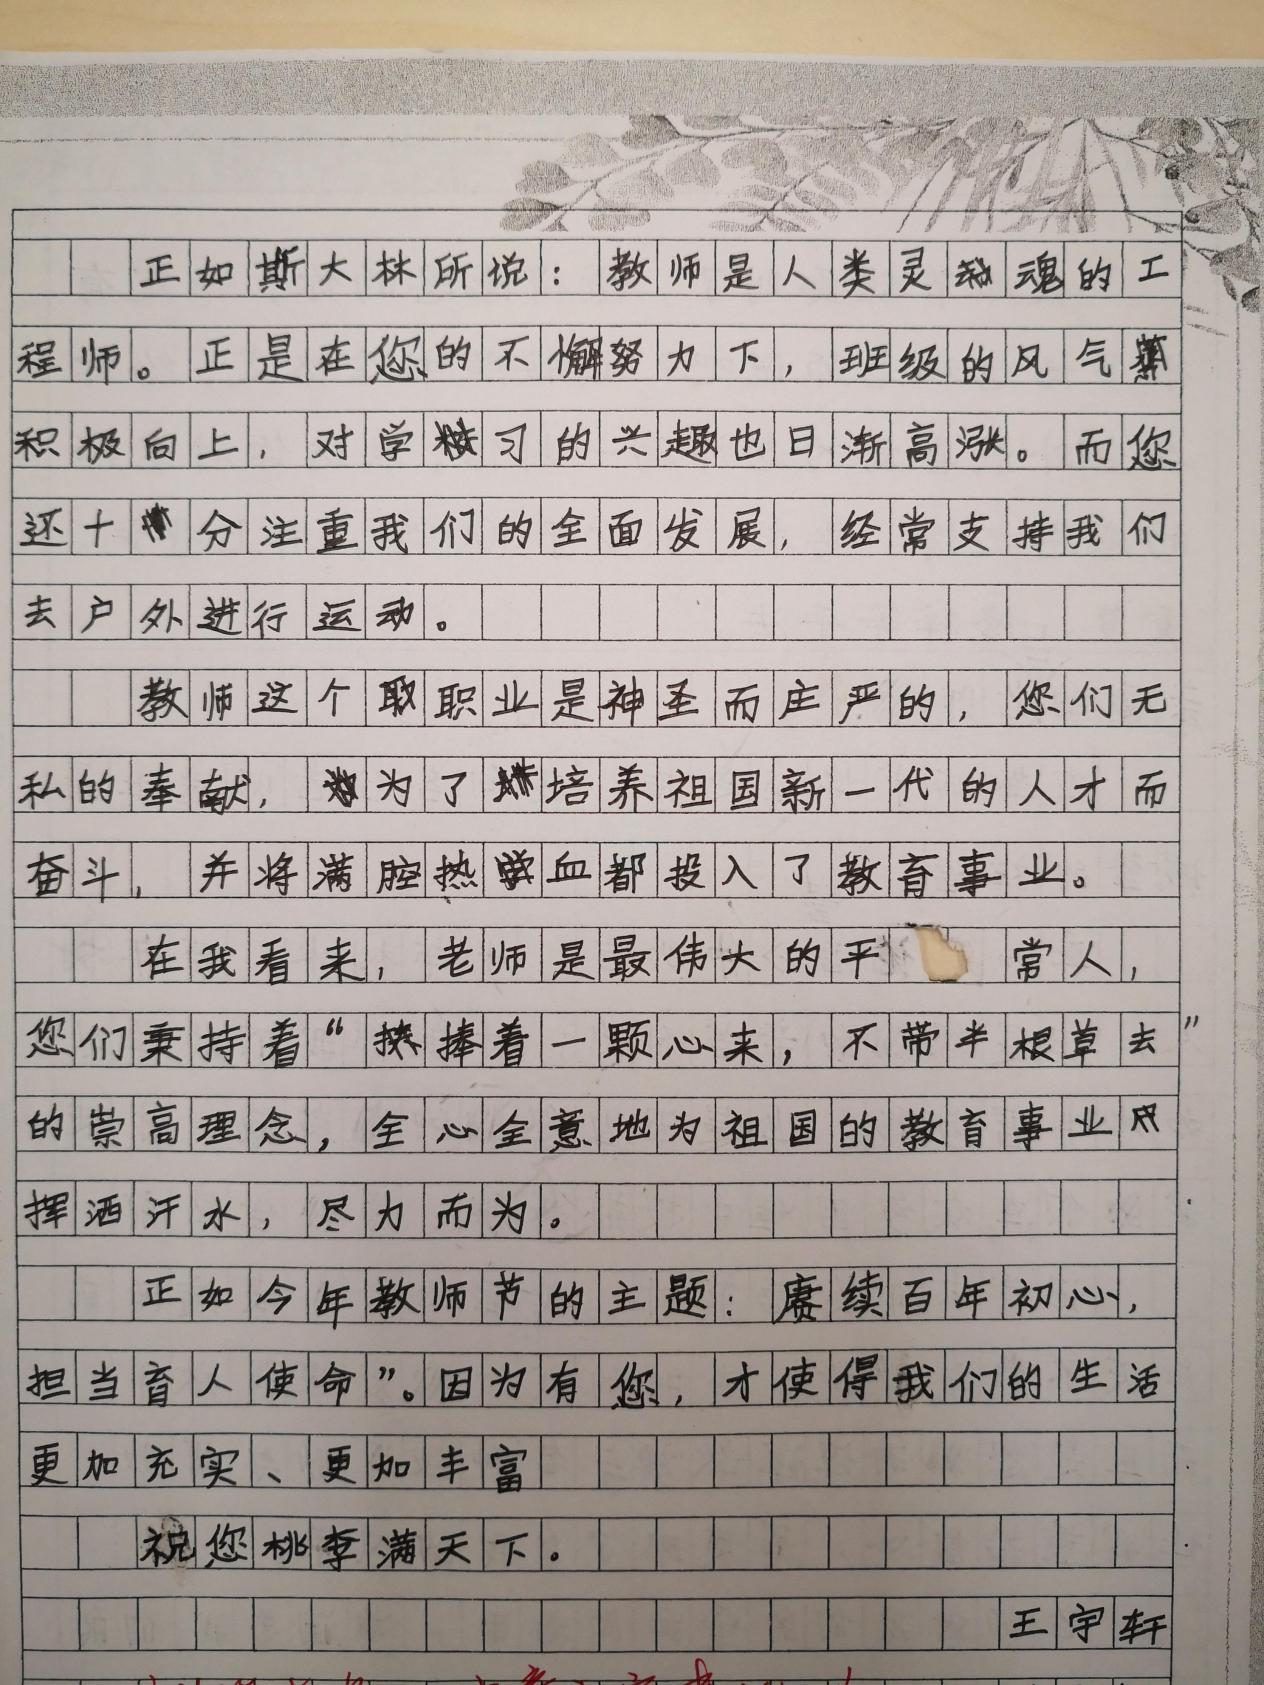 正如斯大林所说：教师是人类灵魂的工
程师。正是在您的不懈努力下，班级的风气
积极向上，对学习的兴趣也日渐高涨。而您
还十分注重我们的全面发展，经常支持我们
去户外进行运动。
教师这个职业是神圣而庄严的，您们无
私的奉献，为了培养祖国新一代的人才而
奋斗，并将满腔热血都投入了教育事业。
在我看来，老师是最伟大的平常人，
您们秉持着“捧着一颗心来，不带半根草去”
的崇高理念，全心全意地为祖国的教育事业
挥洒汗水，尽力而为。
正如今年教师节的主题：赓续百年初心，
担当育人使命”。因为有您，才使得我们的生活
更加充实、更加丰富
祝您桃李满天下。
王宇轩